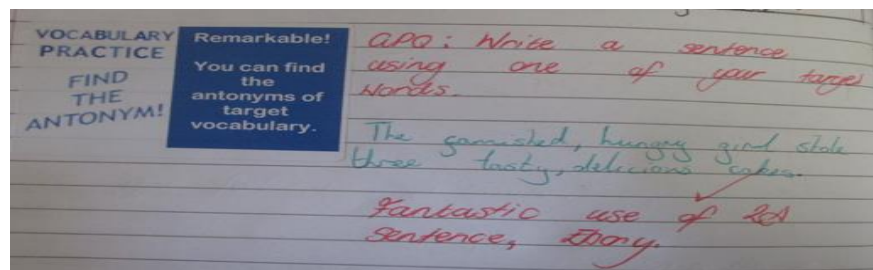 VOCABULARY
PRACTICE
FIND
THE
ANTONYM!
Remarkable!
You can find
the
antonyms of
target
vocabulary.
APQ: Write a sentence
using one of your target
words.
The gamished, hungry girl stole
three tasty, delicious cakes.
Fantastic use of 2Ad
sentence, Ebony.